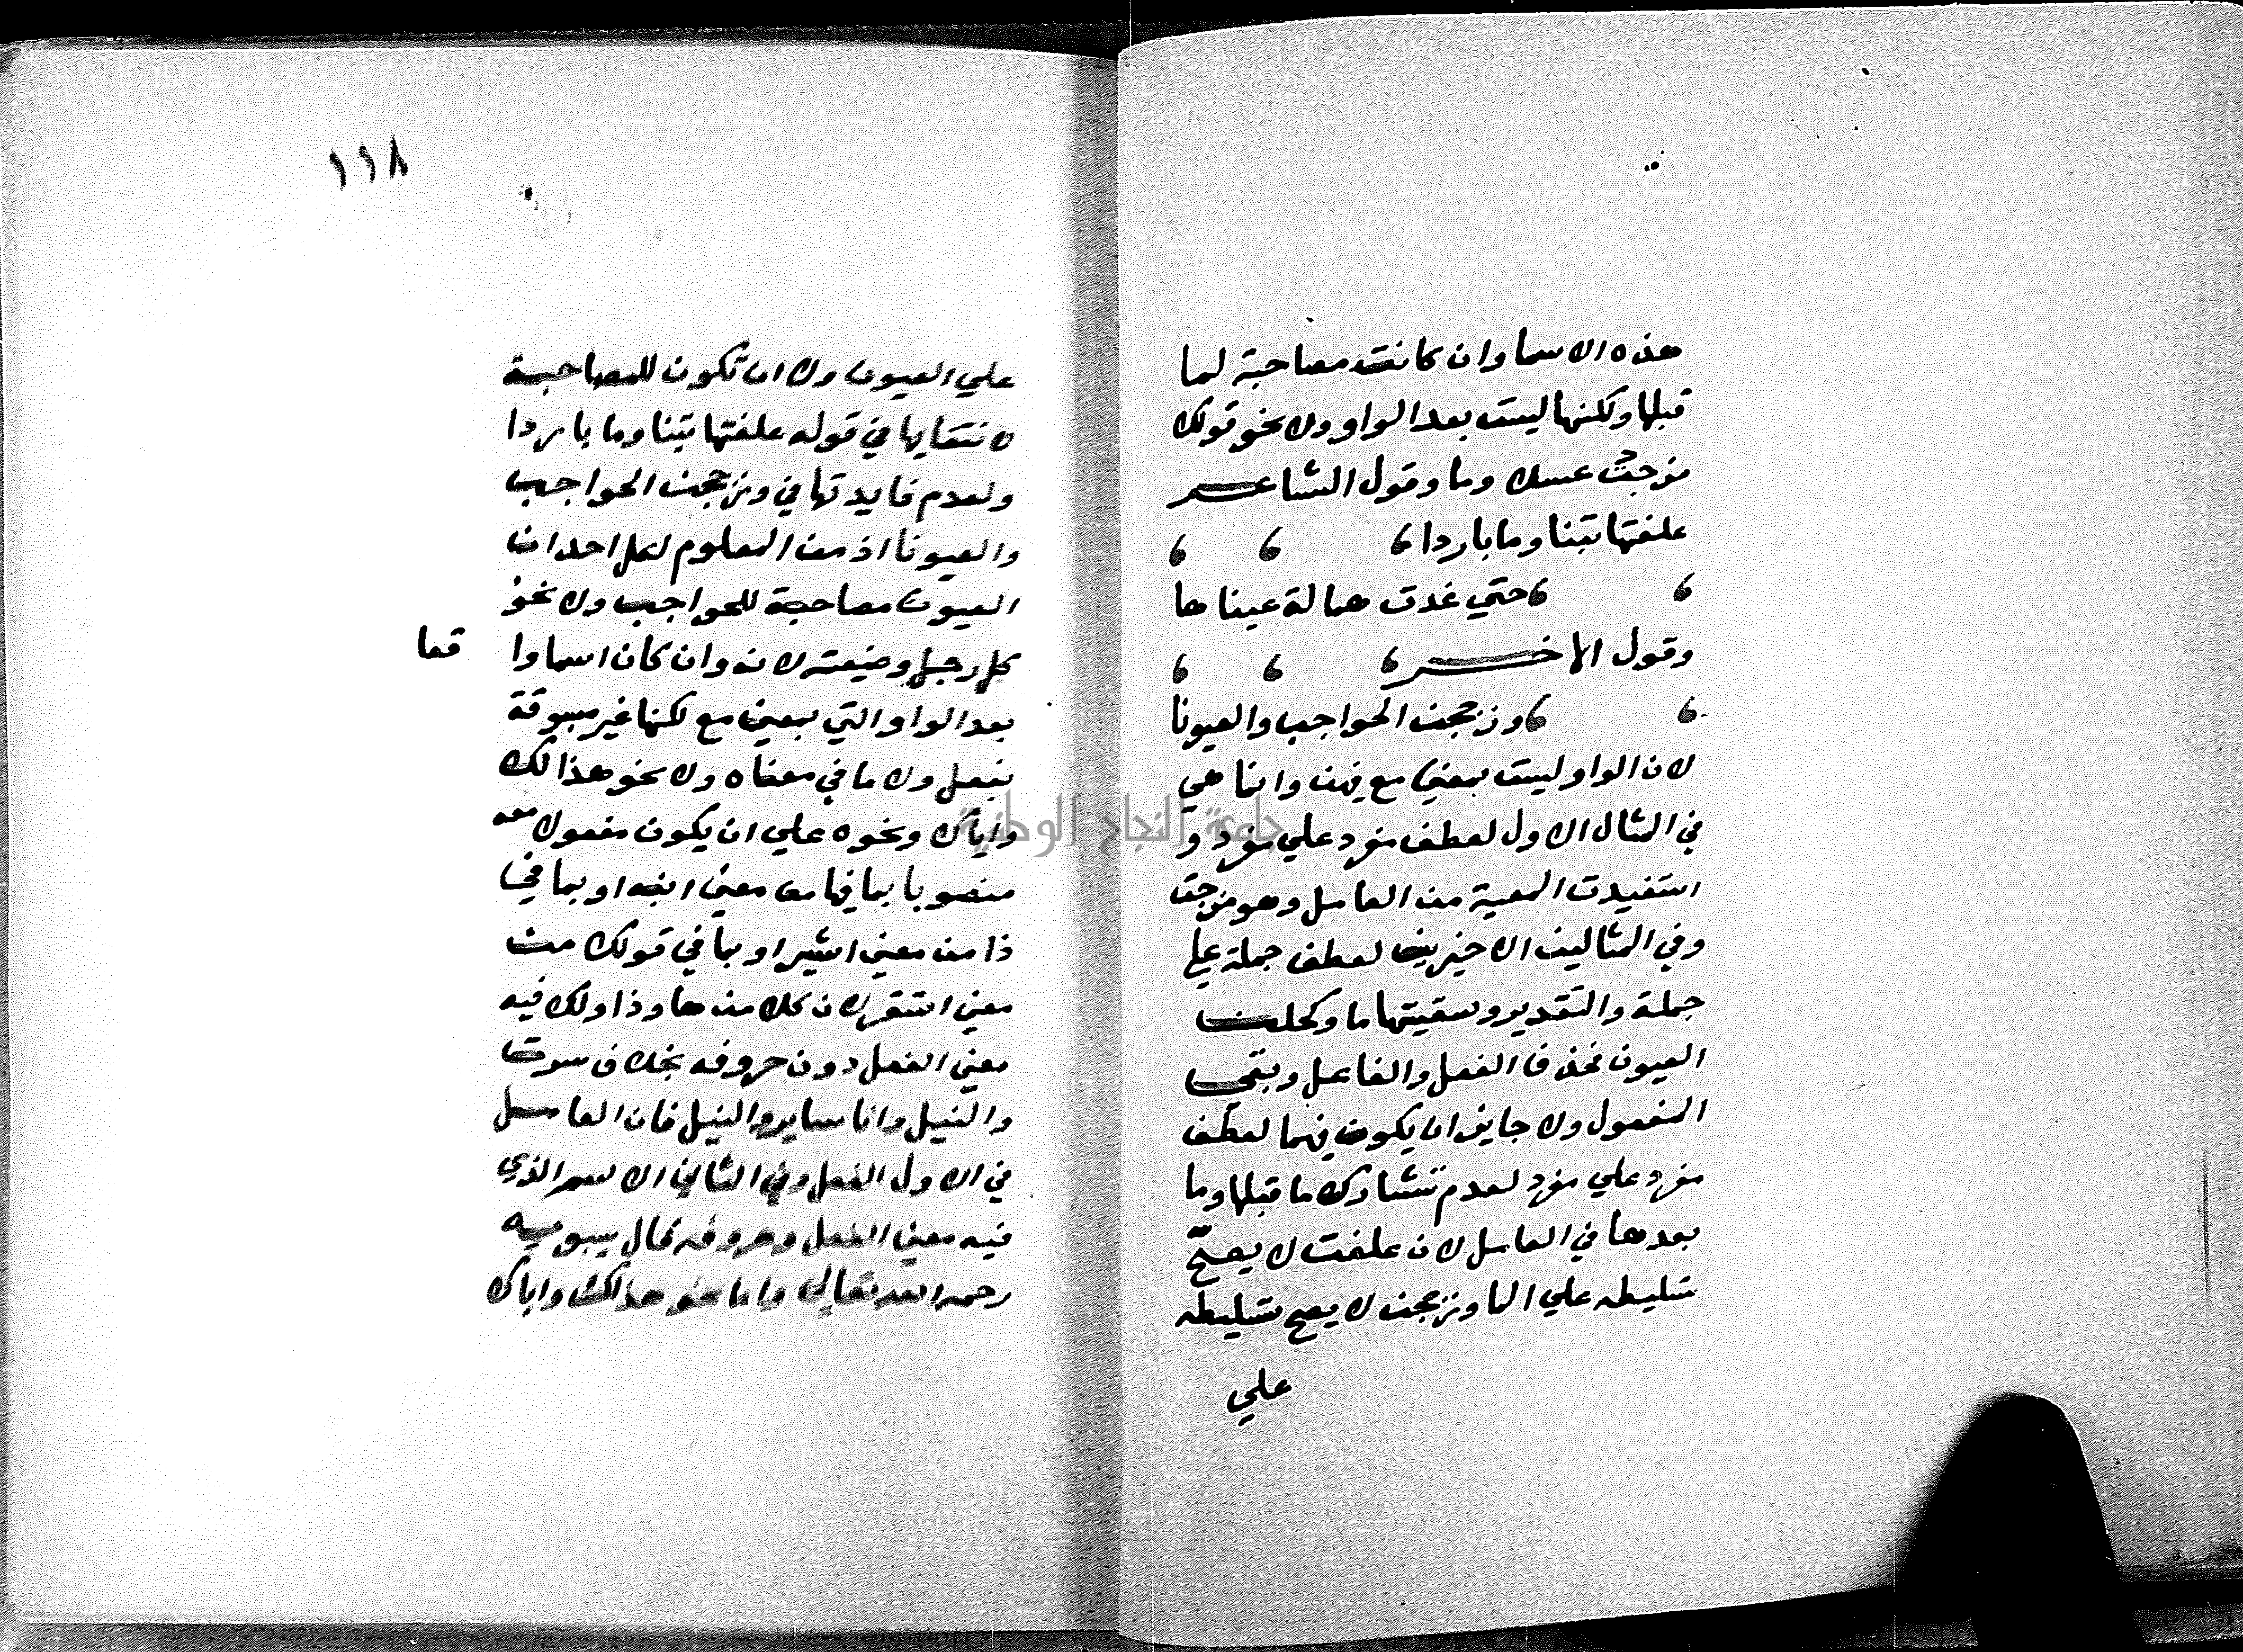 هذه الاسما وان كانت مصاحبة لما
قبلها ولكنها ليست بعد الواو ولا نحو قولك
مزجت عسلا وما وقول الشاعر
علفتها تبنا وما باردا ، ، ،
، ، حتي غدت همالة عيناها
وقول الاخر ، ، ،
، ، وزججن الحواجب والعيونا
لان الواو ليست بمعني مع فيهن وانما هي
في المثال الاول لعطف مفرد علي مفرد و
استفيدت المعية من العامل وهو مزجت
وفي المثالين الاخيرين لعطف جملة علي
جملة والتقدير وسقيتها ما وكحلن
العيون فحذف الفعل والفاعل وبقي
المفعول ولا جايز ان يكون فيهما لعطف
مفرد علي مفرد لعدم تشارك ما قبلها وما
بعدها في العامل لان علفت لا يصح
تسليطه علي الما وزججن لا يصح تسليطه
علي
١١٨
علي العيون ولا ان تكون للمصاحبة
لانتفايها في قوله علفتها تبنا وما باردا
ولعدم فايدتها في وزججن الحواجب
والعيونا اذ من المعلوم لكل احد ان
العيون مصاحبة للحواجب ولا نحو
كل رجل وضيعته لانه وان كان اسما وا
قعا
بعد الواو التي بمعني مع لكنها غير مسبوقة
بفعل ولا ما في معناه ولا نحو هذا لك
واياك ونحوه علي ان يكون مفعولا معه
منصوبا بما فيها من معني انبه او بما في
ذا من معني اشير او بما في قولك من
معني استقر لان كلا من ها وذا ولك فيه
معني الفعل دون حروفه بخلاف سرت
والنيل وانا ساير والنيل فان العامل
في الاول الفعل وفي الثاني الاسم الذي
فيه معني الفعل وحروفه قال سيبويه
رحمه الله تعالي واما نحو هذا لك واباك
جامعة النجاح الوطنية